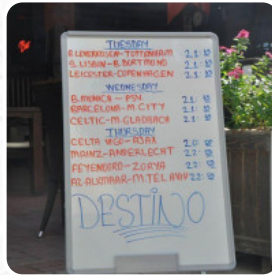 TUESDAY
B. LEVERKUSEN-TOTTENHAM 21:15
S. LISBON-B. DORTMUND 21:15
LEICESTER-COPENHAGEN 21:15
WEDNESDAY
B. MUNICH - PSV 21:15
BARCELONA-M. CITY 21:15
CELTIC-M. GLADBACH 21:15
THURSDAY
CELTA VIGO-AJAX
MAINZ-ANDERLECHT 22:
FEYENOORD-ZORYA 22:
AZ ALKMAAR-M. TEL AVIV 22:
DESTINO